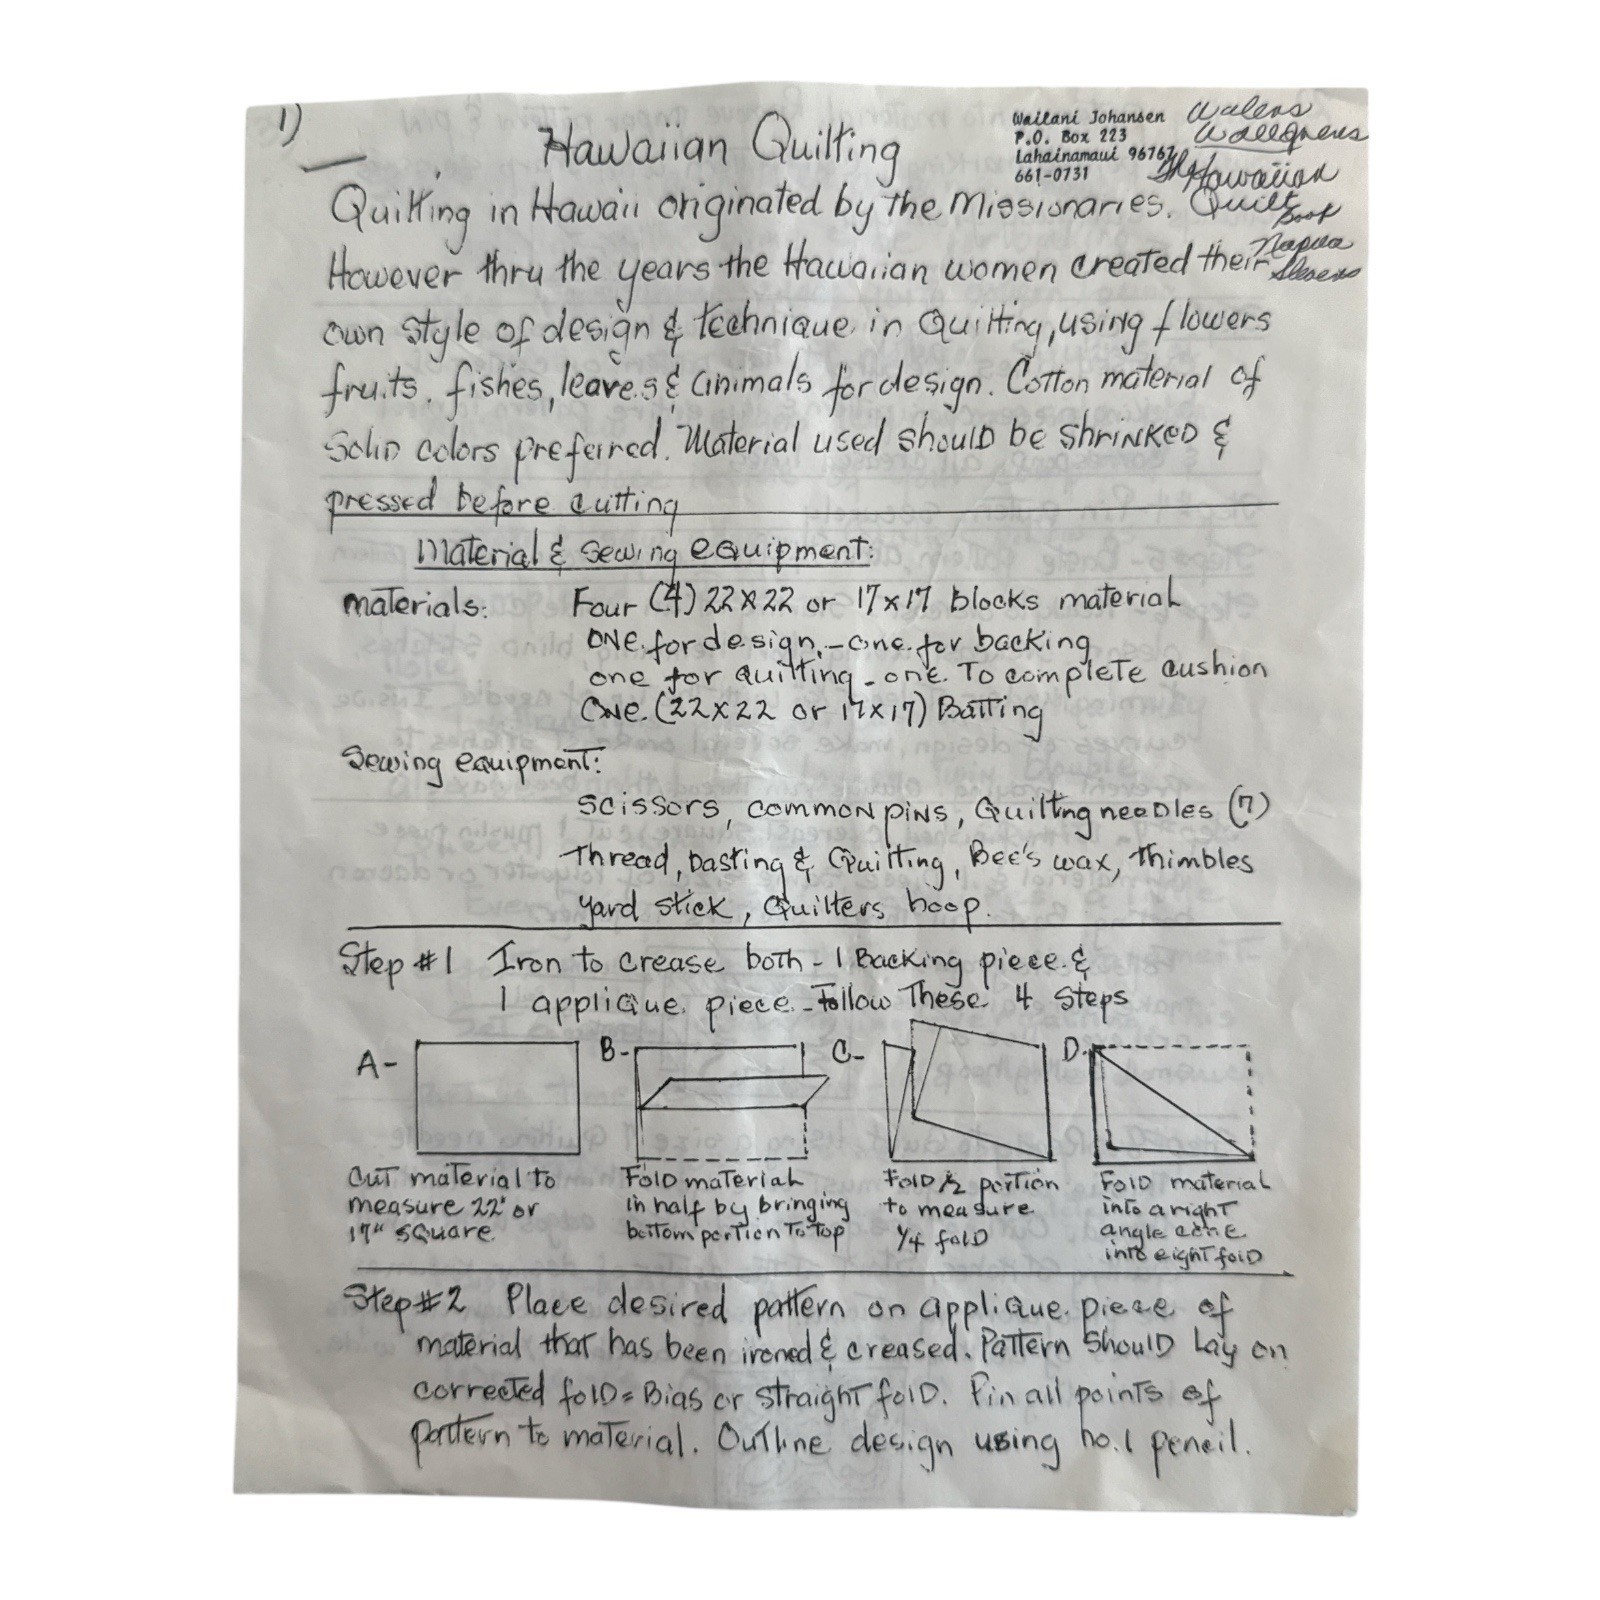 1)
Hawaiian Quilting
Wailani Johansen
P.O. Box 223
Lahainamaui 96767
661-0731
Walens
The Hawaiian
Quilt
Book
Napua
Stevens
Quilting in Hawaii originated by the Missionaries.
However thru the years the Hawaiian women created their
own style of design & technique in Quilting, using flowers
fruits, fishes, leaves & animals for design. Cotton material of
Solid colors preferred. Material used should be shrinked &
pressed before cutting
Material & Sewing equipment:
materials: Four (4) 22 x 22 or 17 x 17 blocks material
one for design, - one for backing
one for quilting - one To complete cushion
One (22 x 22 or 17 x 17) Batting
Sewing equipment:
Scissors, common pins, Quiltng needles (7)
Thread, basting & Quilting, Bee's wax, thimbles
yard stick, Quilters hoop.
Step #1 Iron to crease both - 1 Backing piece &
1 applique piece - Follow These 4 Steps
A-
B-
C-
D.
Cut material to
measure 22" or
17" square.
Fold material
in half by bringing
bottom portion To top
Fold 1/2 portion
to measure
1/4 fold
Fold material
into a right
angle cone
into eight fold
Step #2 Place desired pattern on applique piece of
material that has been ironed & creased. Pattern should Lay on
corrected fold = Bias or straight fold. Pin all points of
pattern to material. Outline design using no. 1 pencil.